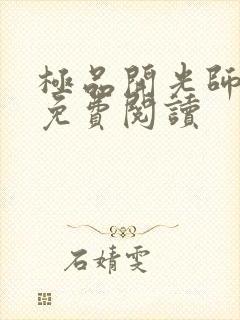 極品開光師
免費閱讀
石婧雯